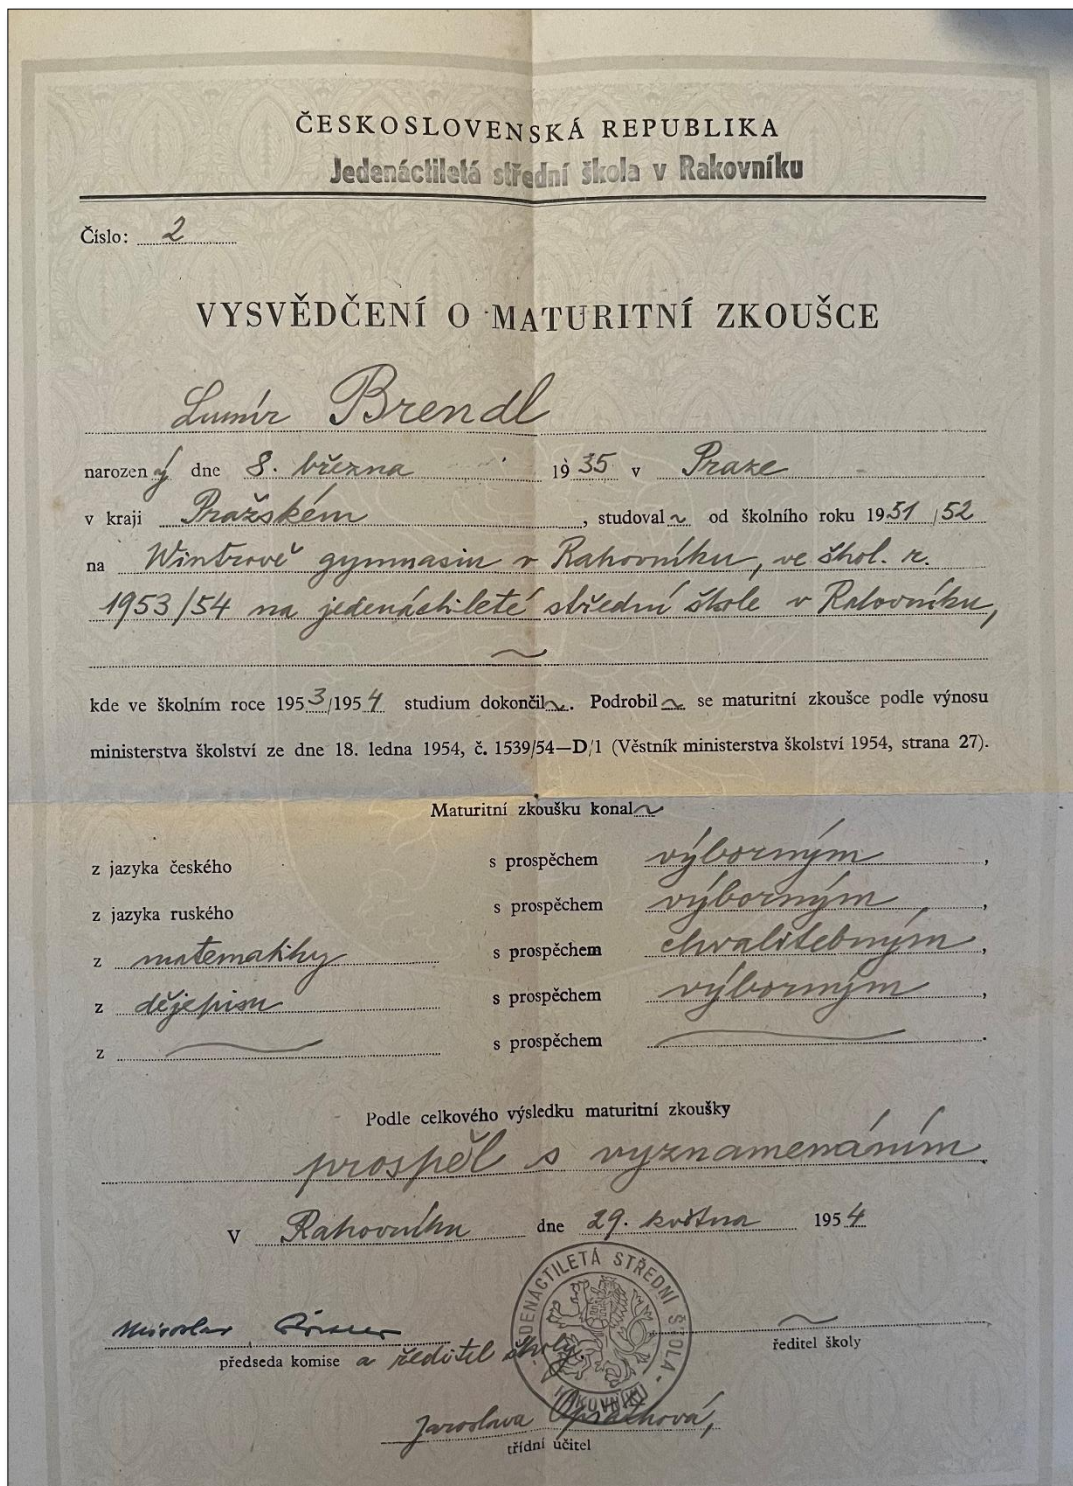 ČESKOSLOVENSKÁ REPUBLIKA
Jedenáctiletá střední škola v Rakovníku
Číslo: 2
VYSVĚDČENÍ O MATURITNÍ ZKOUŠCE
Lumír Brendl
narozený dne 8. března 1935 v Praze
v kraji Pražském, studoval ~ od školního roku 1951/52
na Wintrově gymnasiu v Rakovníku, ve škol. r.
1953/54 na jedenáctileté střední škole v Rakovníku,
~
kde ve školním roce 1953/1954 studium dokončil ~. Podrobil ~ se maturitní zkoušce podle výnosu
ministerstva školství ze dne 18. ledna 1954, č. 1539/54—D/1 (Věstník ministerstva školství 1954, strana 27).
Maturitní zkoušku konal ~
z jazyka českého s prospěchem výborným,
z jazyka ruského s prospěchem výborným,
z matematiky s prospěchem chvalitebným,
z dějepisu s prospěchem výborným,
z s prospěchem .
Podle celkového výsledku maturitní zkoušky
prospěl s vyznamenáním.
V Rakovníku dne 29. května 1954
JEDENÁCTILETÁ STŘEDNÍ ŠKOLA
Miroslav
předseda komise a ředitel školy. ředitel školy
Jaroslava
třídní učitel